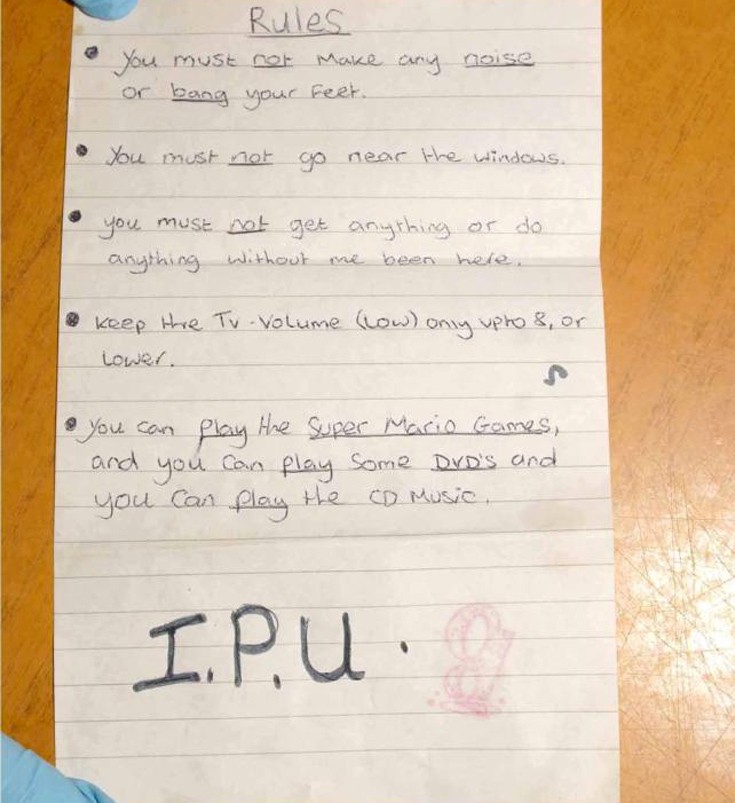 Rules
• You must not make any noise
or bang your feet.
• You must not go near the windows.
• you must not get anything or do
anything without me been here.
• keep the Tv.Volume (Low) only upto 8, or
Lower.
• you can play the Super Mario Games,
and you can play some DVD's and
you can play the CD Music.
I.P.U.